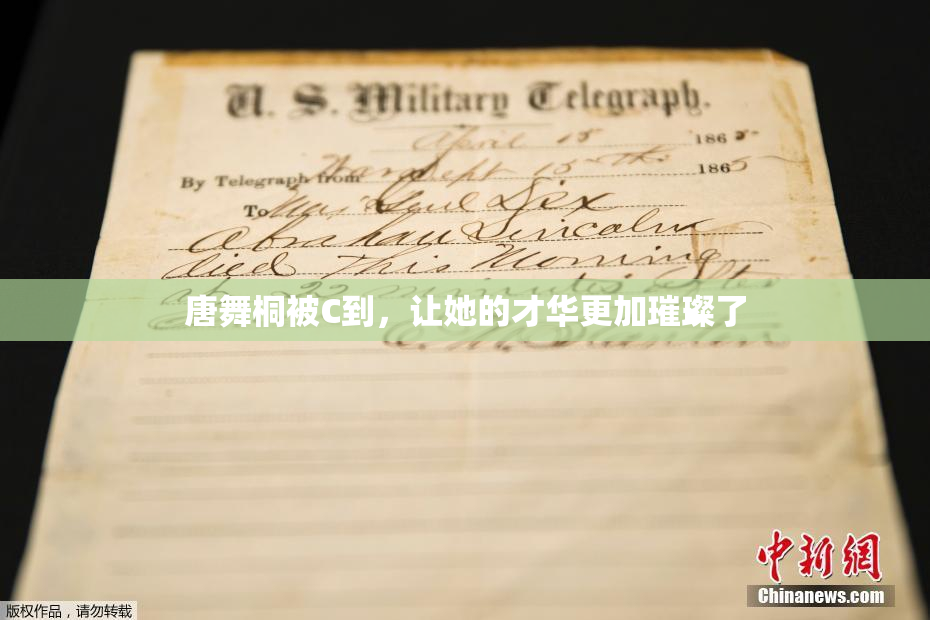 U. S. Military Telegraph.
April 15 1865
By Telegraph from War Dept 15th 1865
To Maj Genl Dix
Abraham Lincoln
died This Morning
at 22 minutes after
唐舞桐被C到，让她的才华更加璀璨了
中新网
Chinanews.com
版权作品，请勿转载